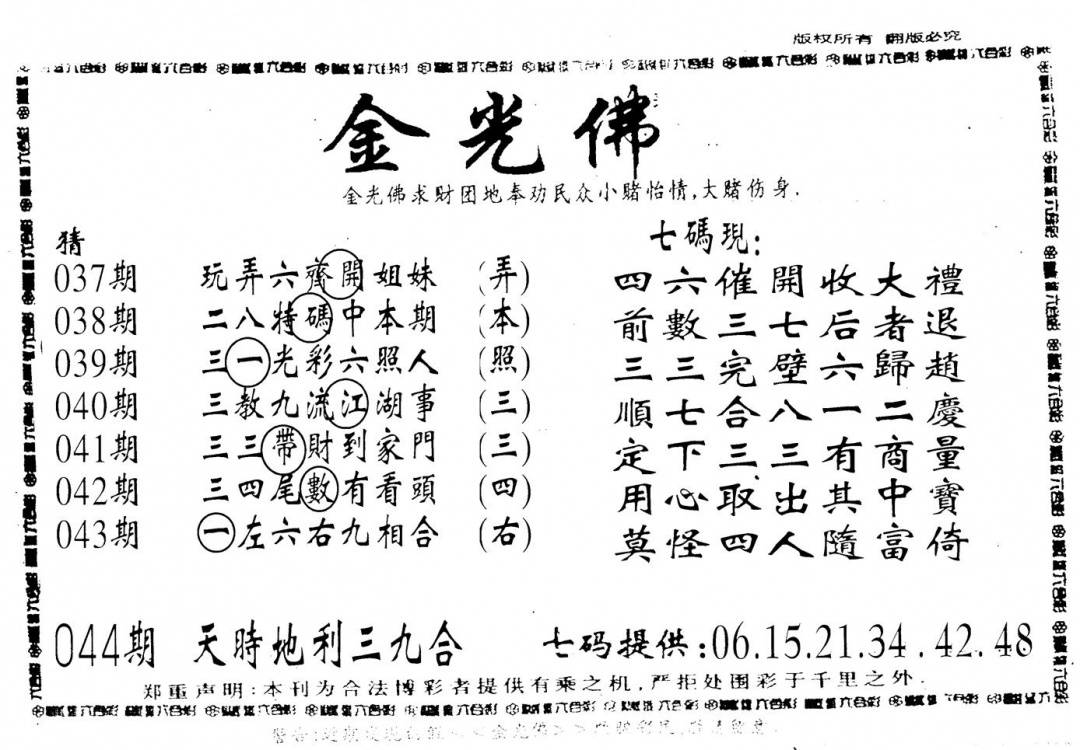 版权所有 翻版必究
金光佛
金光佛求财团地奉劝民众小赌怡情,大赌伤身.
猜
037期 玩弄六齊開姐妹 (弄)
038期 二八特碼中本期 (本)
039期 三一光彩六照人 (照)
040期 三教九流江湖事 (三)
041期 三三帶財到家門 (三)
042期 三四尾數有看頭 (四)
043期 一左六右九相合 (右)
七碼現:
四六催開收大禮
前數三七后者退
三三完壁六歸趙
順七合八一二慶
定下三三有商量
用心取出其中寶
莫怪四人隨富倚
044期 天時地利三九合 七码提供:06.15.21.34.42.48
郑重声明:本刊为合法博彩者提供有乘之机,严拒处围彩于千里之外.